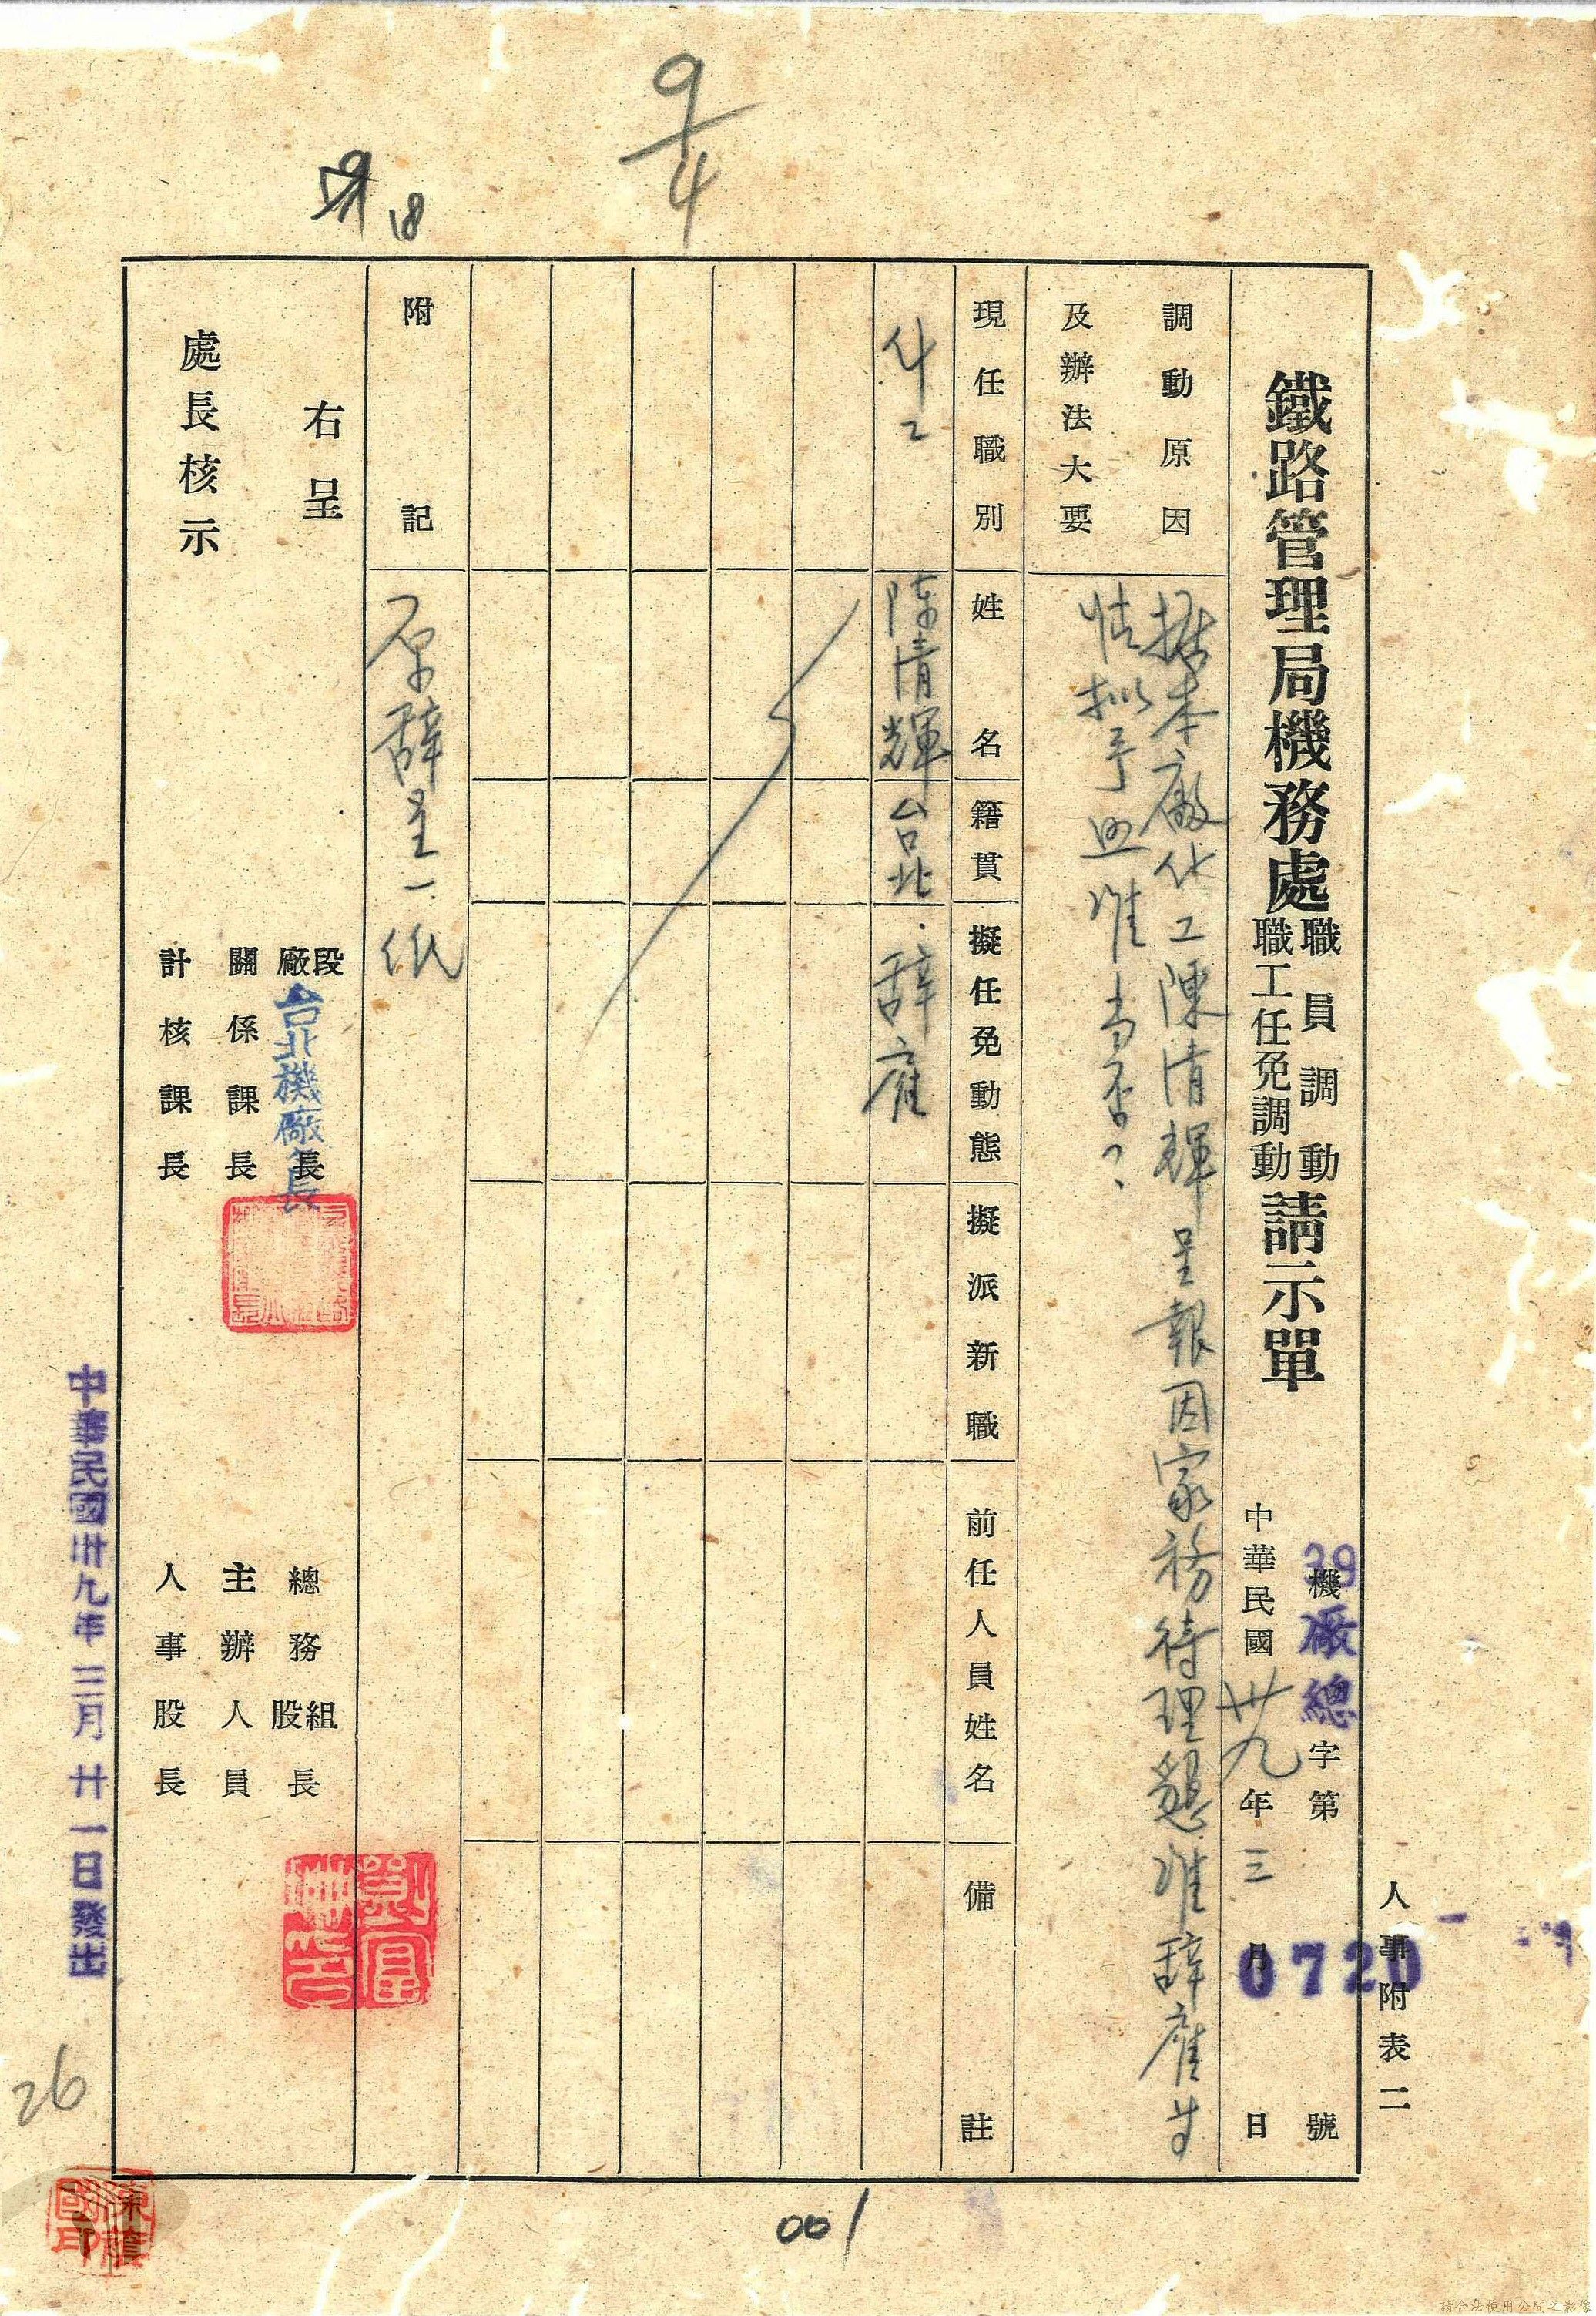 人事附表二
鐵路管理局機務處職員調動職工任免調動請示單
39機廠總字第0720號
中華民國卅九年三月 日
調動原因及辦法大要
據本廠化工陳清輝呈報因家務待理懇准辭雇等
情擬予照准當否?
現任職別 姓名 籍貫 擬任免動態 擬派新職 前任人員姓名 備註
化工 陳清輝 台北 辭雇
附記 原辭呈一紙
右呈
處長核示
段廠長 台北機廠長
關係課長
計核課長
總務組股長
主辦人員
人事股長
中華民國卅九年三月廿一日發出
9/4
18
26
001
請合法使用公開之影像